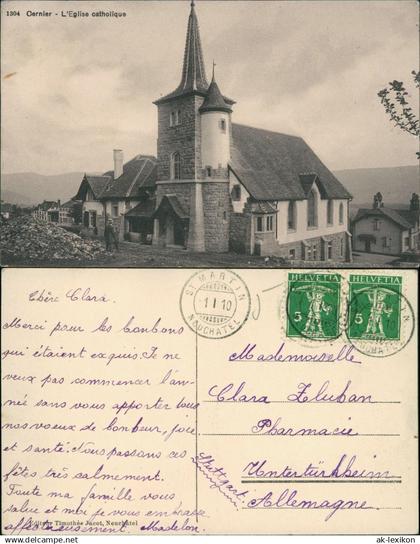 1304 Cernier - L'Eglise catholique
ST MARTIN
-1.I.10
NEUCHATEL
HELVETIA HELVETIA
5 5
Chère Clara.
Merci pour les bonbons
qui étaient exquis. Je ne
veux pas commencer l'an-
née sans vous apporter tous
nos voeux de bonheur, joie
et santé. Nous passons ces
fêtes très calmement.
Toute ma famille vous
salue et moi je vous embrasse
affectueusement. Madelon.
Editeur Timothée Jacot, Neuchâtel
Mademoiselle
Clara Zluhan
Pharmacie
Untertürkheim
Stuttgart
Allemagne.
© ak-lexikon